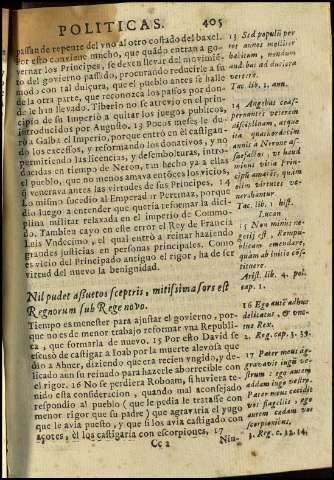 POLITICAS. 405
passan de repente del vno al otro costado del baxel.
Por esto conviene mucho, que quãdo entran a go-
vernar los Principes, se dexen llevar del movimiẽ-
to del govierno passado, procurando reducirle a su
modo con tal dulçura, que el pueblo antes se halle
de la otra parte, que reconozca los passos por don-
de le han llevado. Tiberio no se atrevio en el prin-
cipio de su Imperio a quitar los juegos publicos,
introducidos por Augusto. 13 Pocos meses le du-
ro a Galba el Imperio, porque entrò en èl castigan-
do los excessos, y reformando los donativos, y no
permitiendo las licencias, y desembolturas, intro-
ducidas en tiempo de Neron, tan hecho ya a ellas
el pueblo, que no menos amava entõces los vicios,
que venerava antes las virtudes de sus Principes. 14
Lo mismo sucedio al Emperador Pertinaz, porque
dio luego a entender que queria reformar la dici-
plina militar relaxada en el imperio de Commo-
do. Tambien cayo en este error el Rey de Francia
Luis Vndecimo, el qual entrò a reinar haziendo
grandes justicias en personas principales. Como
es vicio del Principado antiguo el rigor, ha de ser
virtud del nuevo la benignidad.
Nil pudet assuetos sceptris, mitissima sors est
Regnorum sub Rege novo.
Tiempo es menester para ajustar el govierno, por-
que no es de menor trabajo reformar vna Republi-
ca, que formarla de nuevo. 15 Por esto David se
escusò de castigar a Ioab por la muerte alevosa que
dio a Abner, diziendo que era recien vngido, y de-
licado aun su reinado para hazerle aborrecible con
el rigor. 16 No se perdiera Roboam, si huviera te-
nido esta consideracion, quando mal aconsejado
respondio al pueblo (que le pedia le tratasse con
menor rigor que su padre) que agravaria el yugo
que le avia puesto, y que si los avia castigado con
açotes, èl los castigaria con escorpiones. 17
Cc 2 Niu-
13 Sed populi per
tot annos molliter
habitum, nondum
audebat ad duriora
vertere.
Tac. lib. 1. ann.
14 Angebat coas-
pernantes veterem
disciplinam, atque
ita quatuordecim
annis a Nerone as-
suefactos, vt haud
minus vitia Prin-
cipũ amarẽt, quam
olim virtutes ve-
nerabantur.
Tac. lib. 1. hist.
Lucan
15 Non minus ne-
gotij est, Rempu-
blicam emendare,
quam ab initio cõs-
tituere.
Arist. lib. 4. pol.
cap. 1.
16 Ego autẽ adhuc
delicatus, & vnc-
tus Rex.
2. Reg. cap. 3. 39.
17 Pater meus ag-
gravavit iugũ ve-
strum: ego autem
addam iugo vestro.
Pater meus cecidit
vos flagellis, ego
autem cædam vos
scorpionibus.
3. Reg. c. 12. 14.